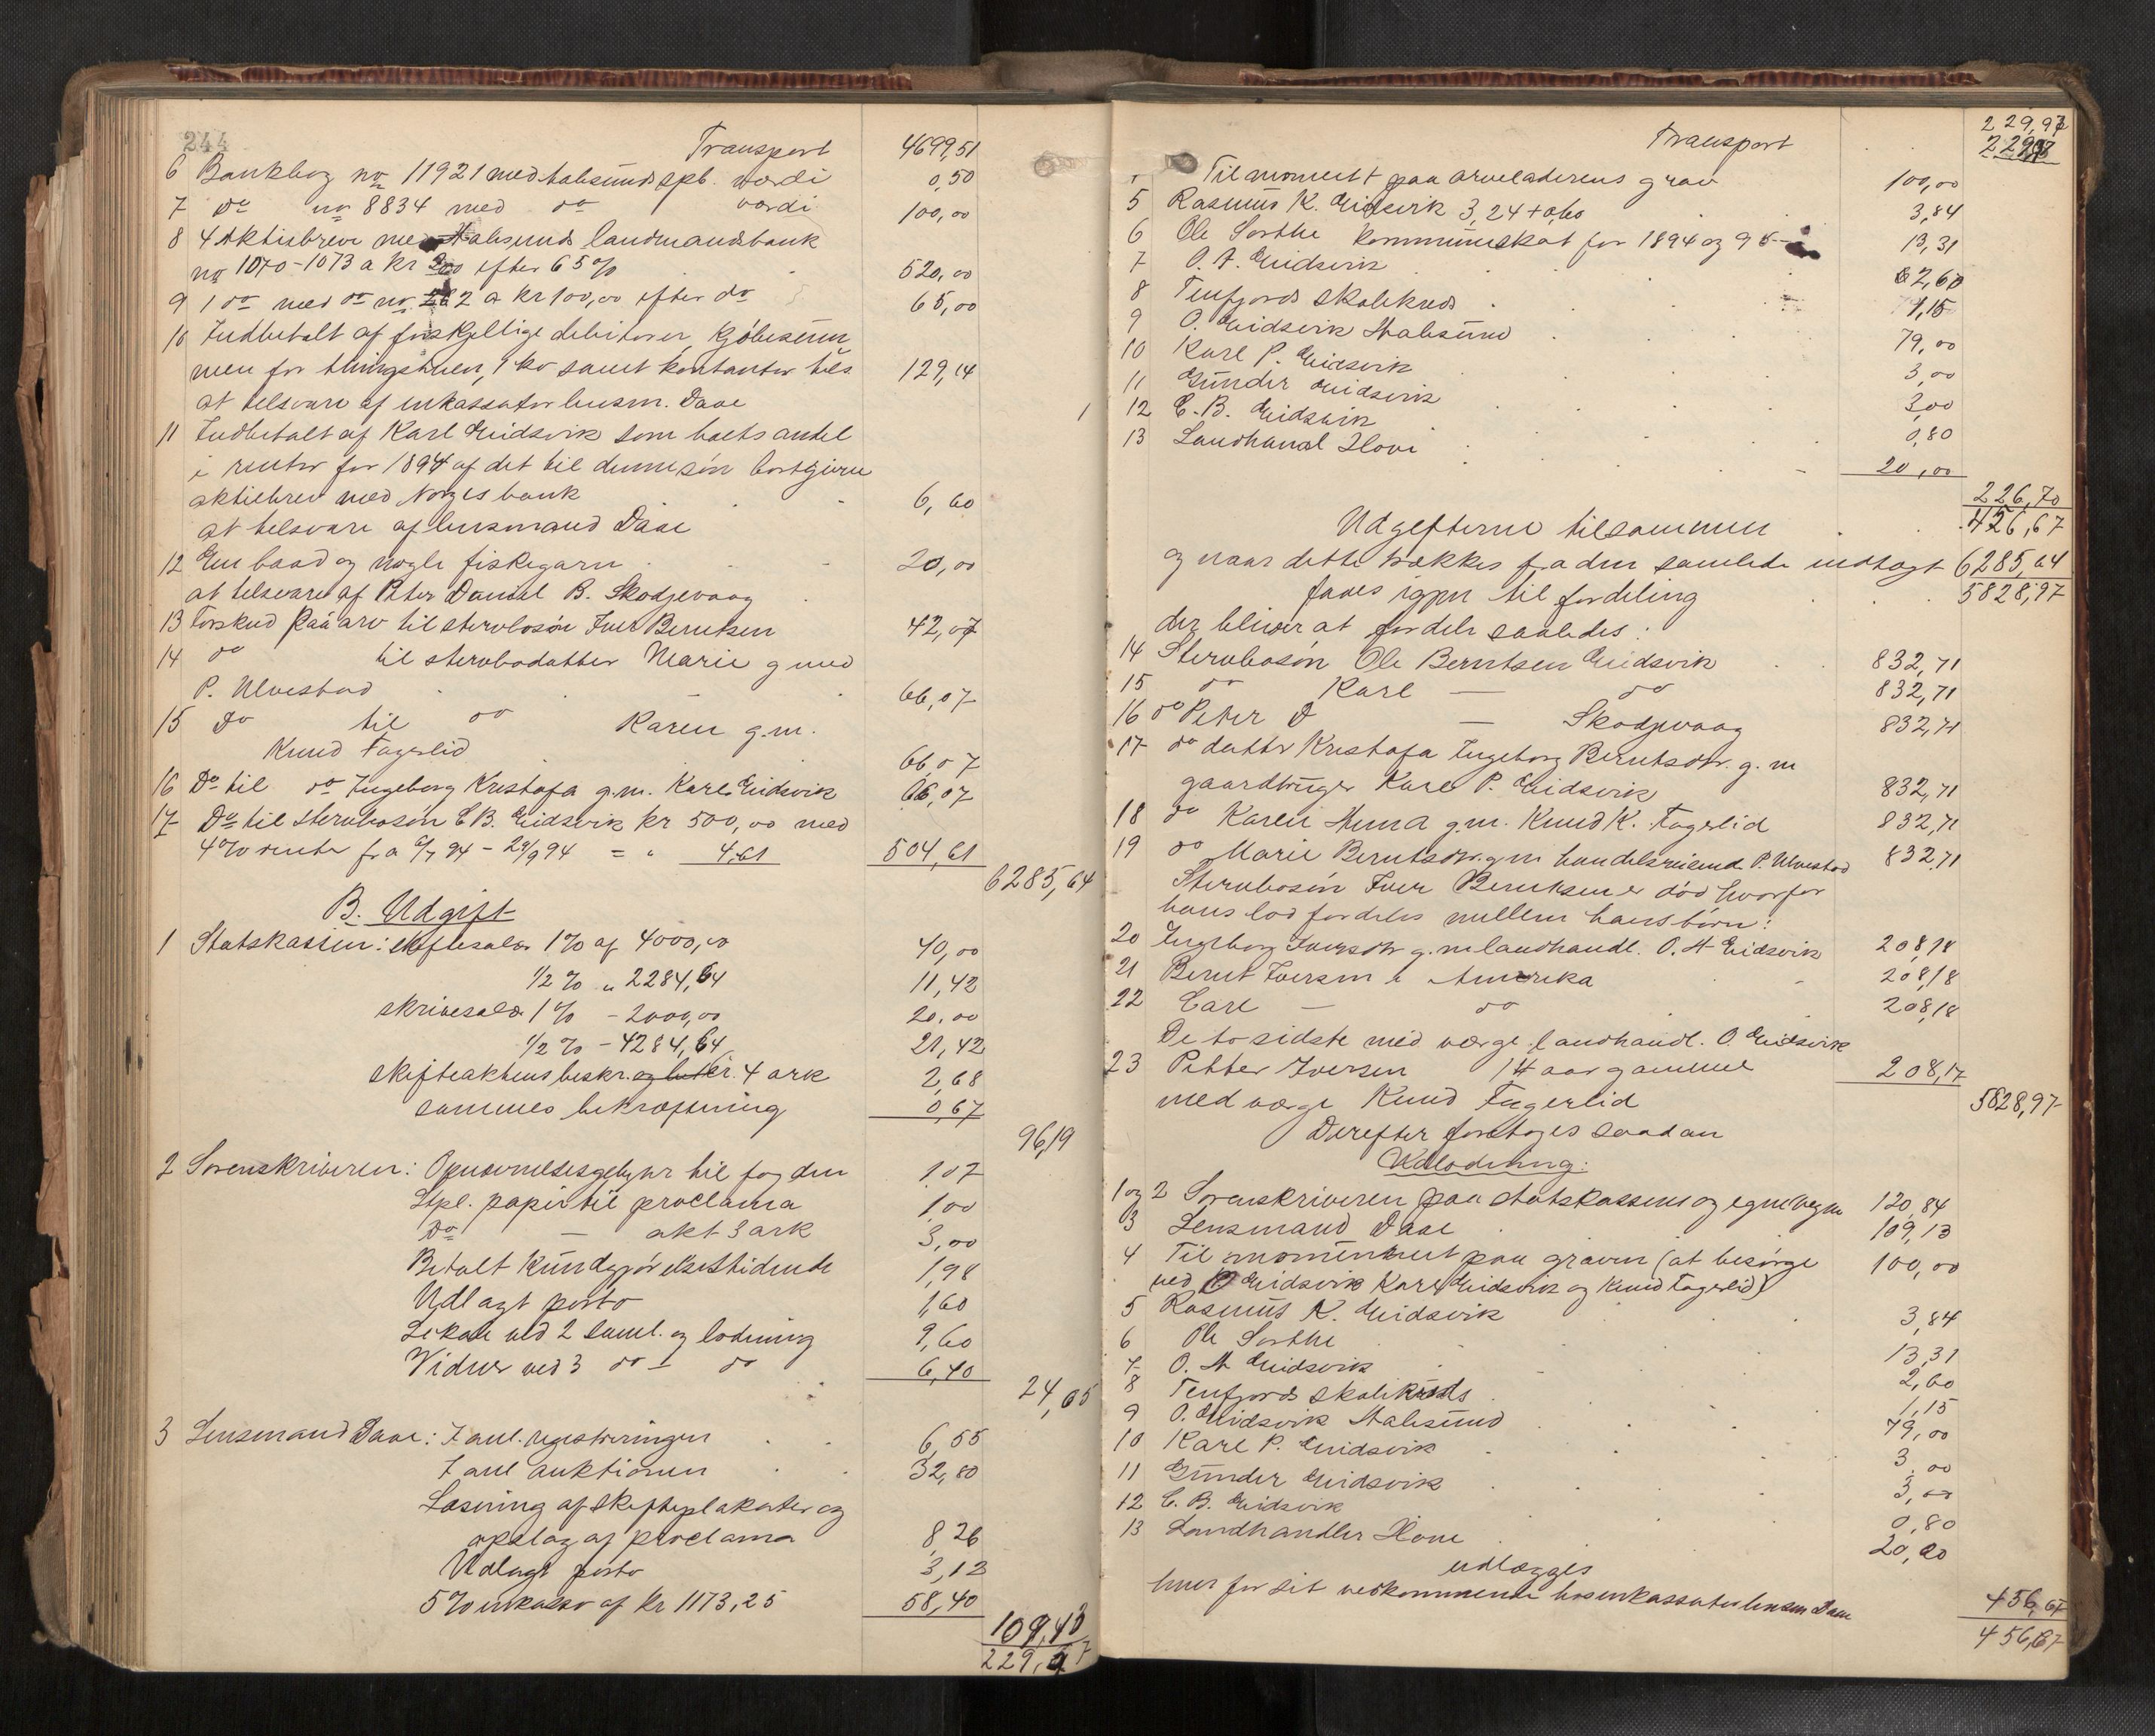 244
Transport 4699,51
6 Bankbog no 11921 med Aalesunds spb. værdi 0,50
7 Do no 8834 med do værdi 100,00
8 4 Aktiebreve med Aalesunds landmandsbank
no 1070-1073 a kr 200 efter 65% 520,00
9 1 do med do no 282 a kr 100,00 efter do 65,00
10 Indbetalt af forskjellige debitorer, kjøbesum
men for thingstuen, 1 ko samt kontanter tils. 129,14
at tilsvare af inkassator lensm. Daae
11 Indbetalt af Karl Eidsvik som boets andel
i renter for 1894 af det til denne søn bortgivne
aktiebrev med Norges bank 6,60
at tilsvare af lensmand Daae
12 En baad og nogle fiskegarn 20,00
at tilsvare af Peter Daniel B. Skodjevaag
13 Forskud paa arv til stervbosøn Iver Berntsen 42,07
14 do til stervbodatter Marie g med
P. Ulvestad 66,07
15 Do til do Karen g.m.
Knud Fagerlid 66,07
16 Do til do Ingeborg Kristofa g.m. Karl Eidsvik 66,07
17 Do til stervbosøn C B. Eidsvik kr 500,00 med
4% rente fra 6/7 94 - 29/9 94 = " 4,61 504,61
6285,64
B. Udgift
1 Statskassen: skiftesalær 1% af 4000,00 40,00
1/2 % " 2284,64 11,42
skrivesalær 1% - 2000,00 20,00
1/2 % - 4284,64 21,42
skifteaktens beskr. og bekr. 4 ark 2,68
sammes bekræftning 0,67
96,19
2 Sorenskriveren: Opnævnelsesgebyr til fogden 1,07
Stpl. papir til proclama 1,00
Do — akt 3 ark 3,00
Betalt Kundgjørelsestidende 1,98
Udlagt porto 1,60
Lokale ved 2 saml. og lodning 9,60
Vidner ved 3 do - do 6,40
24,65
3 Lensmand Daae: I anl. registreringen 6,55
I anl auktionen 32,80
Læsning af skifteplakater og
opslag af proclama 8,26
Udlagt porto 3,12
5% inkasso af kr 1173,25 58,40
109,13
229,97
Transport 229,97
229,97
4 Til monument paa arveladerens grav 100,00
5 Rasmus K. Eidsvik 3,24 + 0,60 3,84
6 Ole Sorthe kommuneskat for 1894 og 95 13,31
7 O. A. Eidsvik 2,60
8 Tenfjords skolekreds 1,15
9 O. Eidsvik Aalesund 79,00
10 Karl P. Eidsvik 3,00
11 Gunder Eidsvik 3,00
12 C. B. Eidsvik 0,80
13 Landhandl Hove 20,00
226,70
Udgifterne tilsammen 456,67
og naar dette trækkes fra den samlede indtægt 6285,64
faaes igjen til fordeling 5828,97
der bliver at fordele saaledes:
14 Stervbosøn Ole Berntsen Eidsvik 832,71
15 do Karl — do 832,71
16 do Peter D — Skodjevaag 832,71
17 do datter Kristofa Ingeborg Berntsdtr. g. m
gaardbruger Karl P. Eidsvik 832,71
18 do Karen Anna g.m. Knud K. Fagerlid 832,71
19 do Marie Berntsdtr. g m handelsreisende P. Ulvestad 832,71
Stervbosøn Iver Berntsen er død hvorfor
hans lod fordeles mellem hans børn:
20 Ingeborg Iversdtr g. m landhandl. O. A Eidsvik 208,18
21 Bernt Iversen i Amerika 208,18
22 Carl — do 208,18
De to sidste med værge landhandl. O. Eidsvik
23 Petter Iversen 14 aar gammel 208,17
med værge Knud Fagerlid 5828,97
Derefter foretoges saadan
Udlodning:
1 og 2 Sorenskriveren paa statskassens og egne vegne 120,84
3 Lensmand Daae 109,13
4 Til monument paa graven (at besørge 100,00
ved O Eidsvik Karl Eidsvik og Knud Fagerlid)
5 Rasmus K. Eidsvik 3,84
6 Ole Sorthe 13,31
7 O. A Eidsvik 2,60
8 Tenfjords skolekreds 1,15
9 O. Eidsvik Aalesund 79,00
10 Karl P. Eidsvik 3,00
11 Gunder Eidsvik 3,00
12 C. B. Eidsvik 0,80
13 Landhandler Hove 20,00
udlægges
hver for sit vedkommende hos inkassator lensm Daae 456,67
456,67